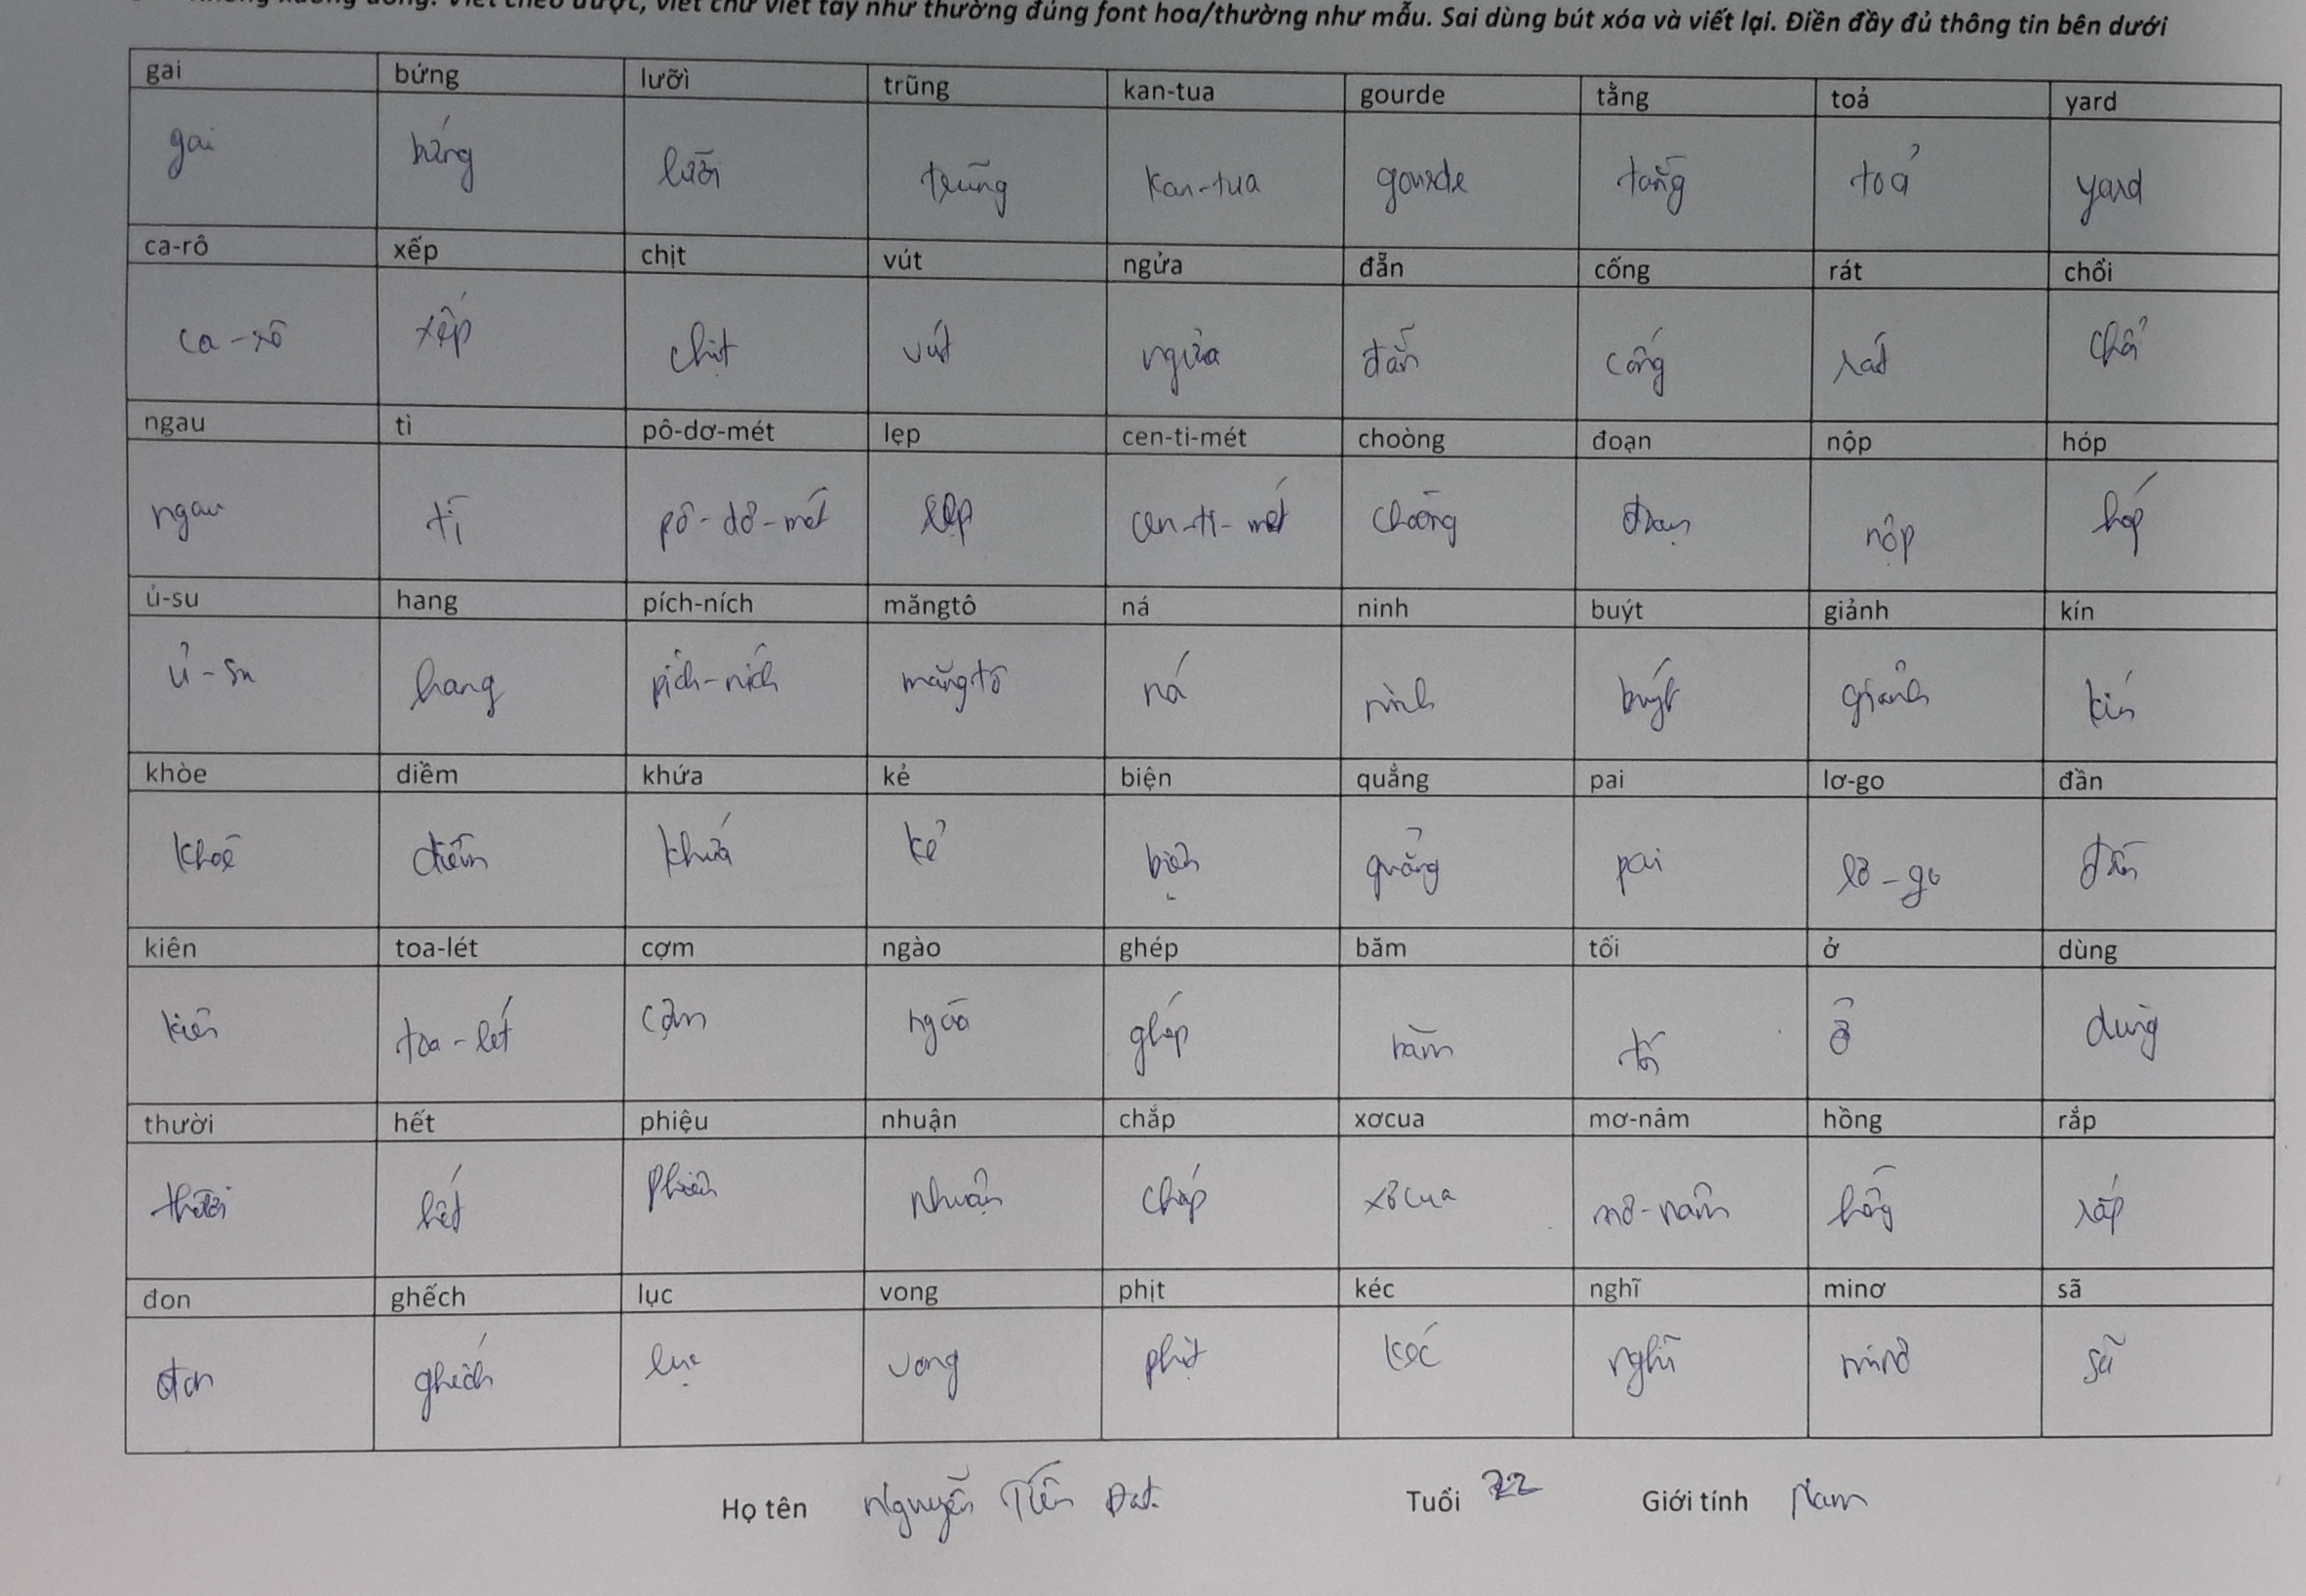 không xuống dòng. Viết theo được, viết chữ viết tay như thường đúng font hoa/thường như mẫu. Sai dùng bút xóa và viết lại. Điền đầy đủ thông tin bên dưới
gai bứng lưỡi trũng kan-tua gourde tằng toả yard
gai bứng lưỡi trũng kan-tua gourde tằng toả yard
ca-rô xếp chịt vút ngửa đẵn cống rát chổi
ca-rô xếp chịt vút ngửa đẵn cống rát chổi
ngau tì pô-dơ-mét lẹp cen-ti-mét choòng đoạn nộp hóp
ngau tì pô-dơ-mét lẹp cen-ti-mét choòng đoạn nộp hóp
ủ-su hang pích-ních măngtô ná ninh buýt giảnh kín
ủ-su hang pích-ních măngtô ná ninh buýt giảnh kín
khòe diềm khứa kẻ biện quẳng pai lơ-go đần
khoè diềm khứa kẻ biện quẳng pai lơ-go đần
kiên toa-lét cợm ngào ghép băm tối ở dùng
kiên toa-lét cợm ngào ghép băm tối ở dùng
thười hết phiệu nhuận chắp xơcua mơ-nâm hồng rắp
thười hết nhuận chắp xơcua mơ-nâm hồng rắp
đon ghếch lục vong phịt kéc nghĩ minơ sã
đon ghếch lục vong phịt kéc nghĩ minơ sã
Họ tên Nguyễn Tiến Đạt Tuổi 22 Giới tính Nam